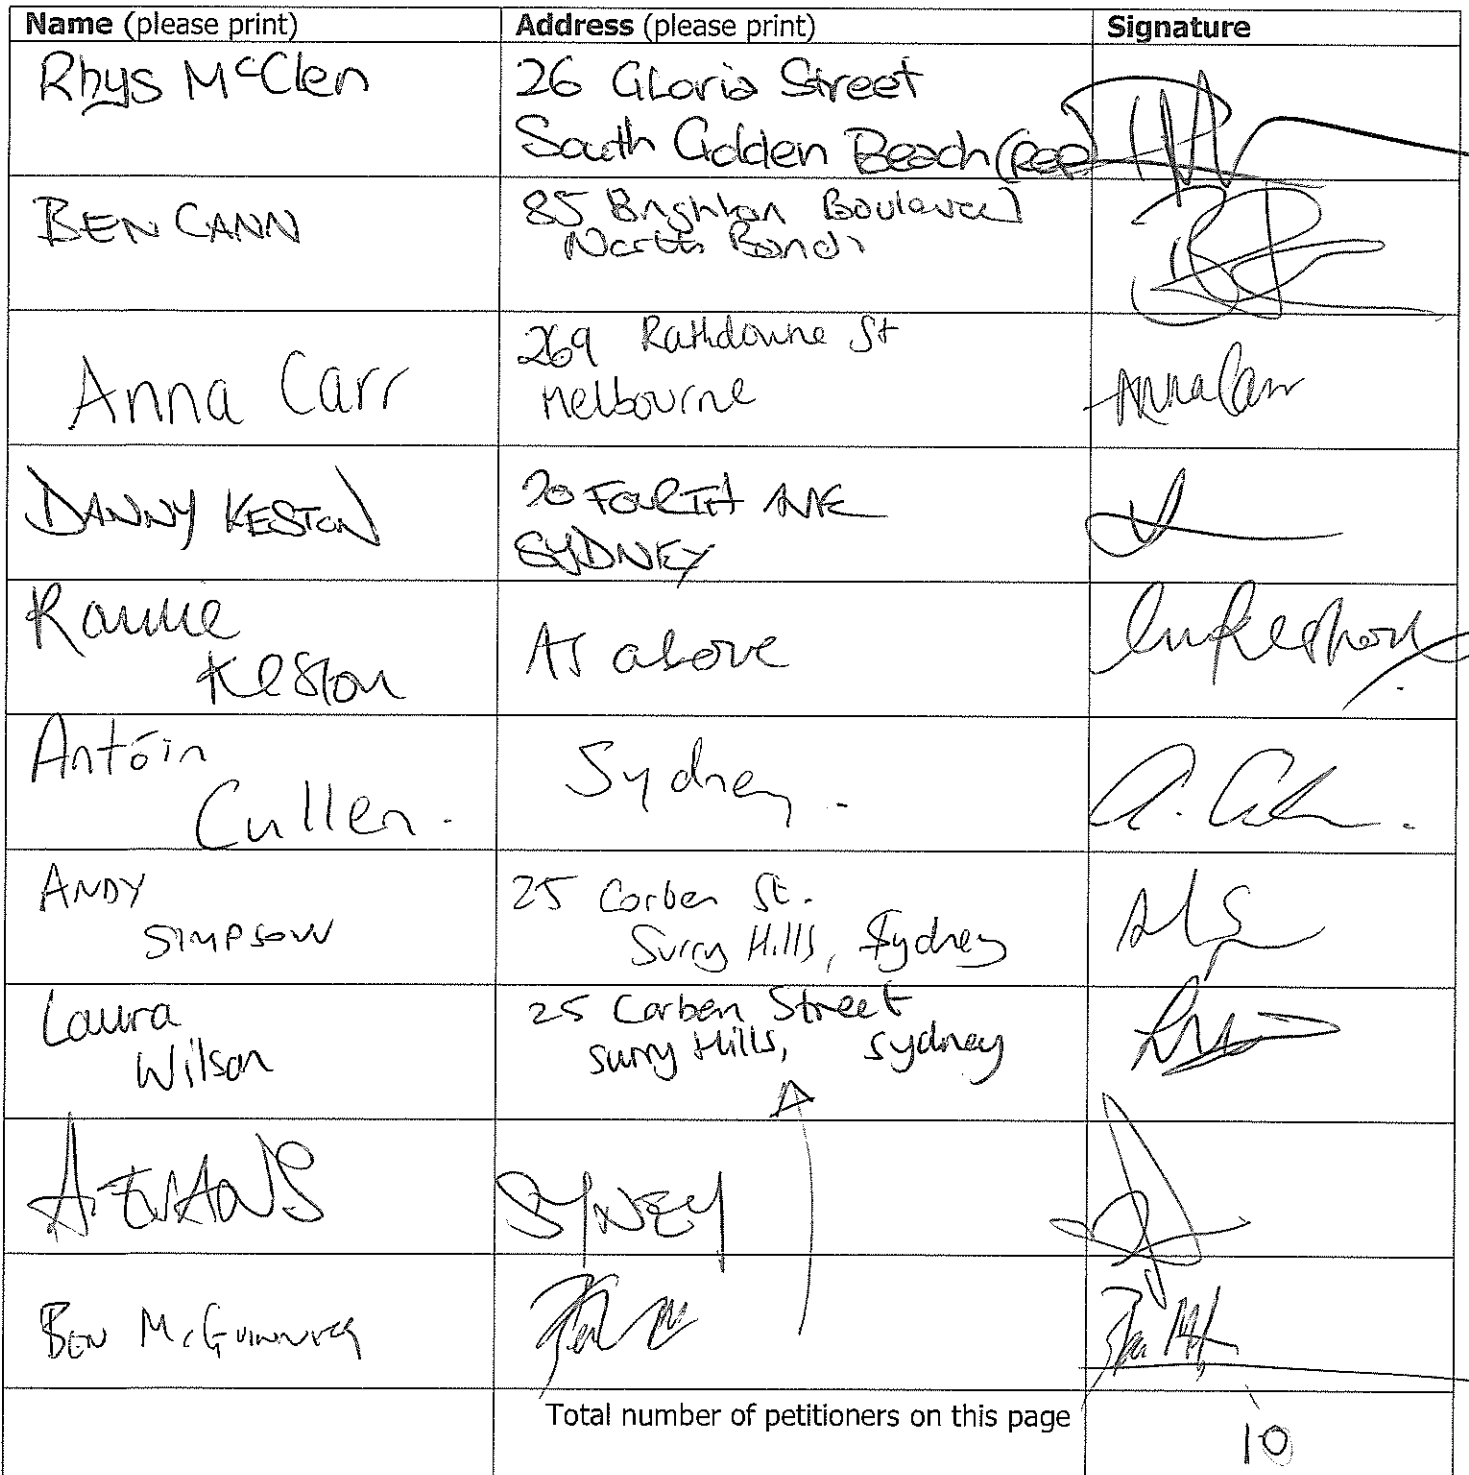 Name (please print) Address (please print) Signature
Rhys McClen
26 Gloria Street
South Golden Beach
BEN CANN
85 Brighton Boulevard
North Bondi
Anna Carr
269 Rathdowne St
Melbourne
Anna Carr
DANNY KESTON
20 FOURTH AVE
SYDNEY
Keston
As above
Antóin
Cullen.
Sydney.
ANDY
SIMPSON
25 Corben St.
Surry Hills, Sydney
Laura
Wilson
25 Corben Street
Surry Hills, Sydney
A. EVANS
SYNEY
BEN
Total number of petitioners on this page
10